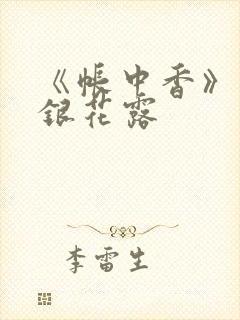 《帐中香》
银花露
李雷生